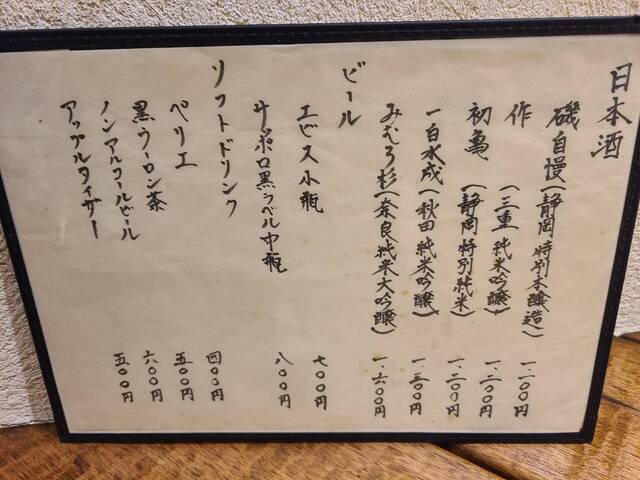 日本酒
磯自慢(静岡 特別本醸造) 一、一〇〇円
作 (三重 純米吟醸) 一、二〇〇円
初亀 (静岡 特別純米) 一、二〇〇円
一白水成(秋田 純米吟醸) 一、三〇〇円
みむろ杉(奈良純米大吟醸) 一、六〇〇円
ビール
エビス小瓶 七〇〇円
サッポロ黒ラベル中瓶 八〇〇円
ソフトドリンク
ペリエ 四〇〇円
黒ウーロン茶 五〇〇円
ノンアルコールビール 六〇〇円
アップルタイザー 五〇〇円